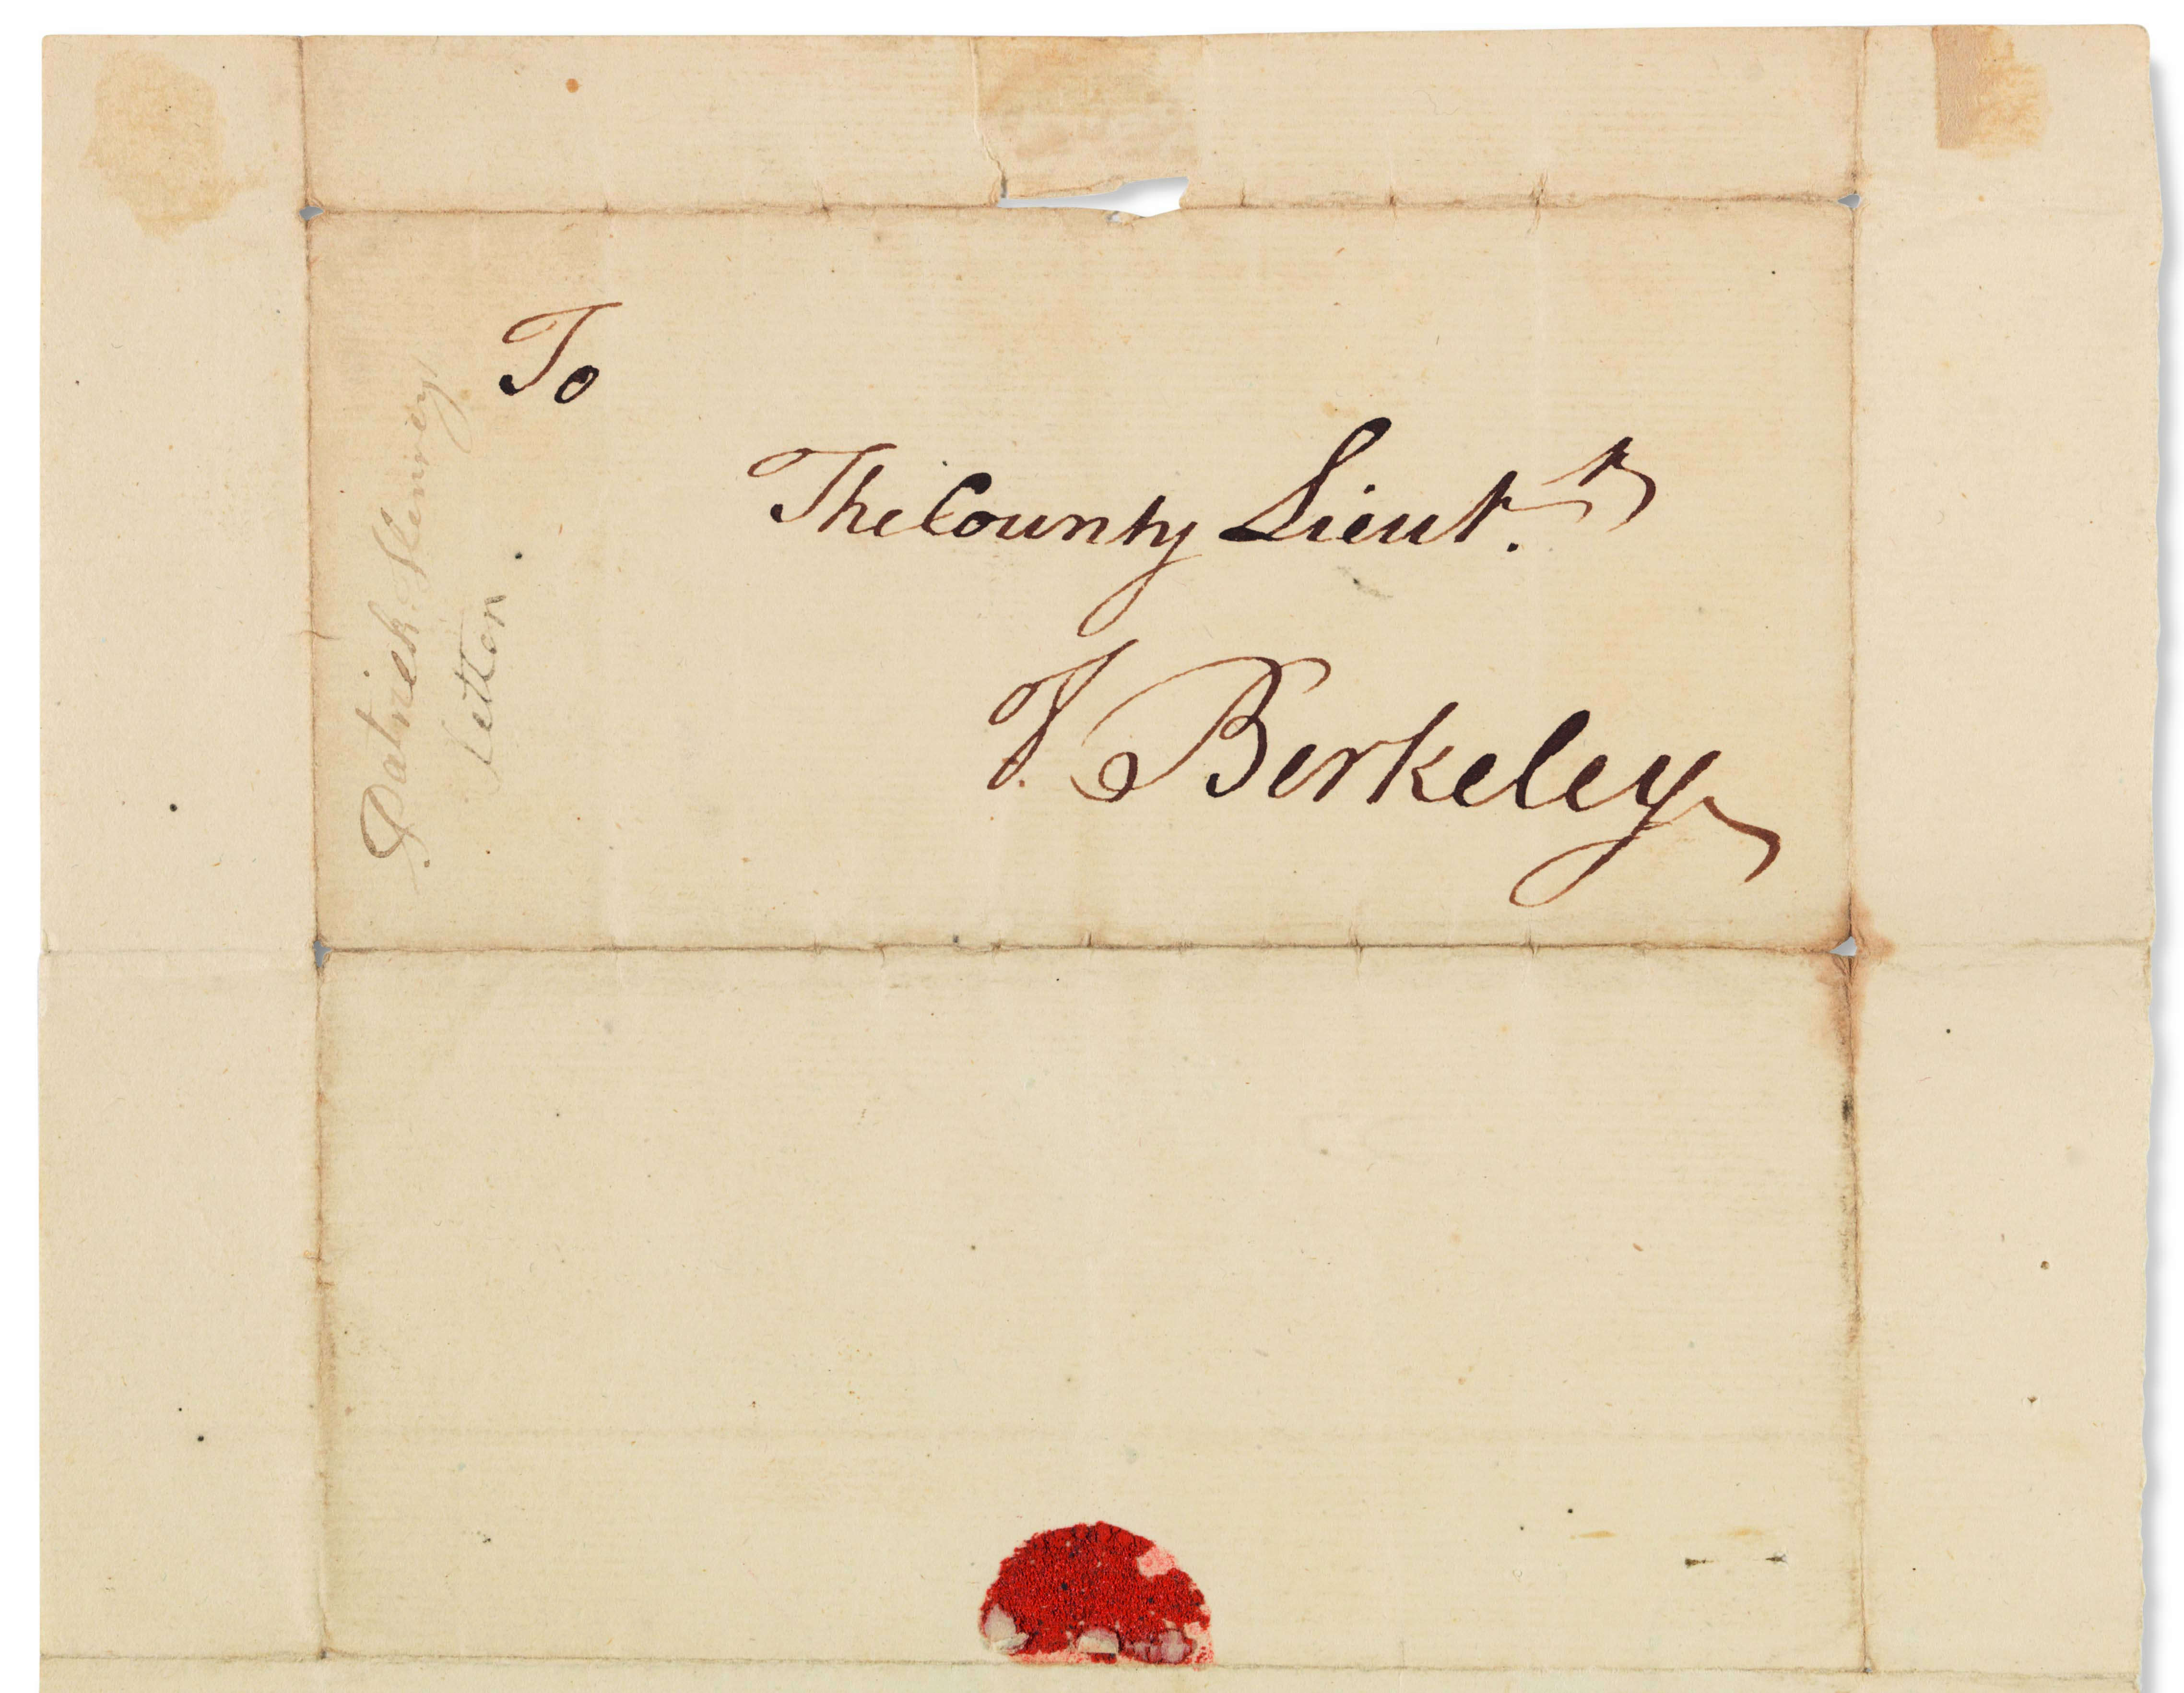 To
The County Lieut.
of Berkeley
Patrick Henry
letter